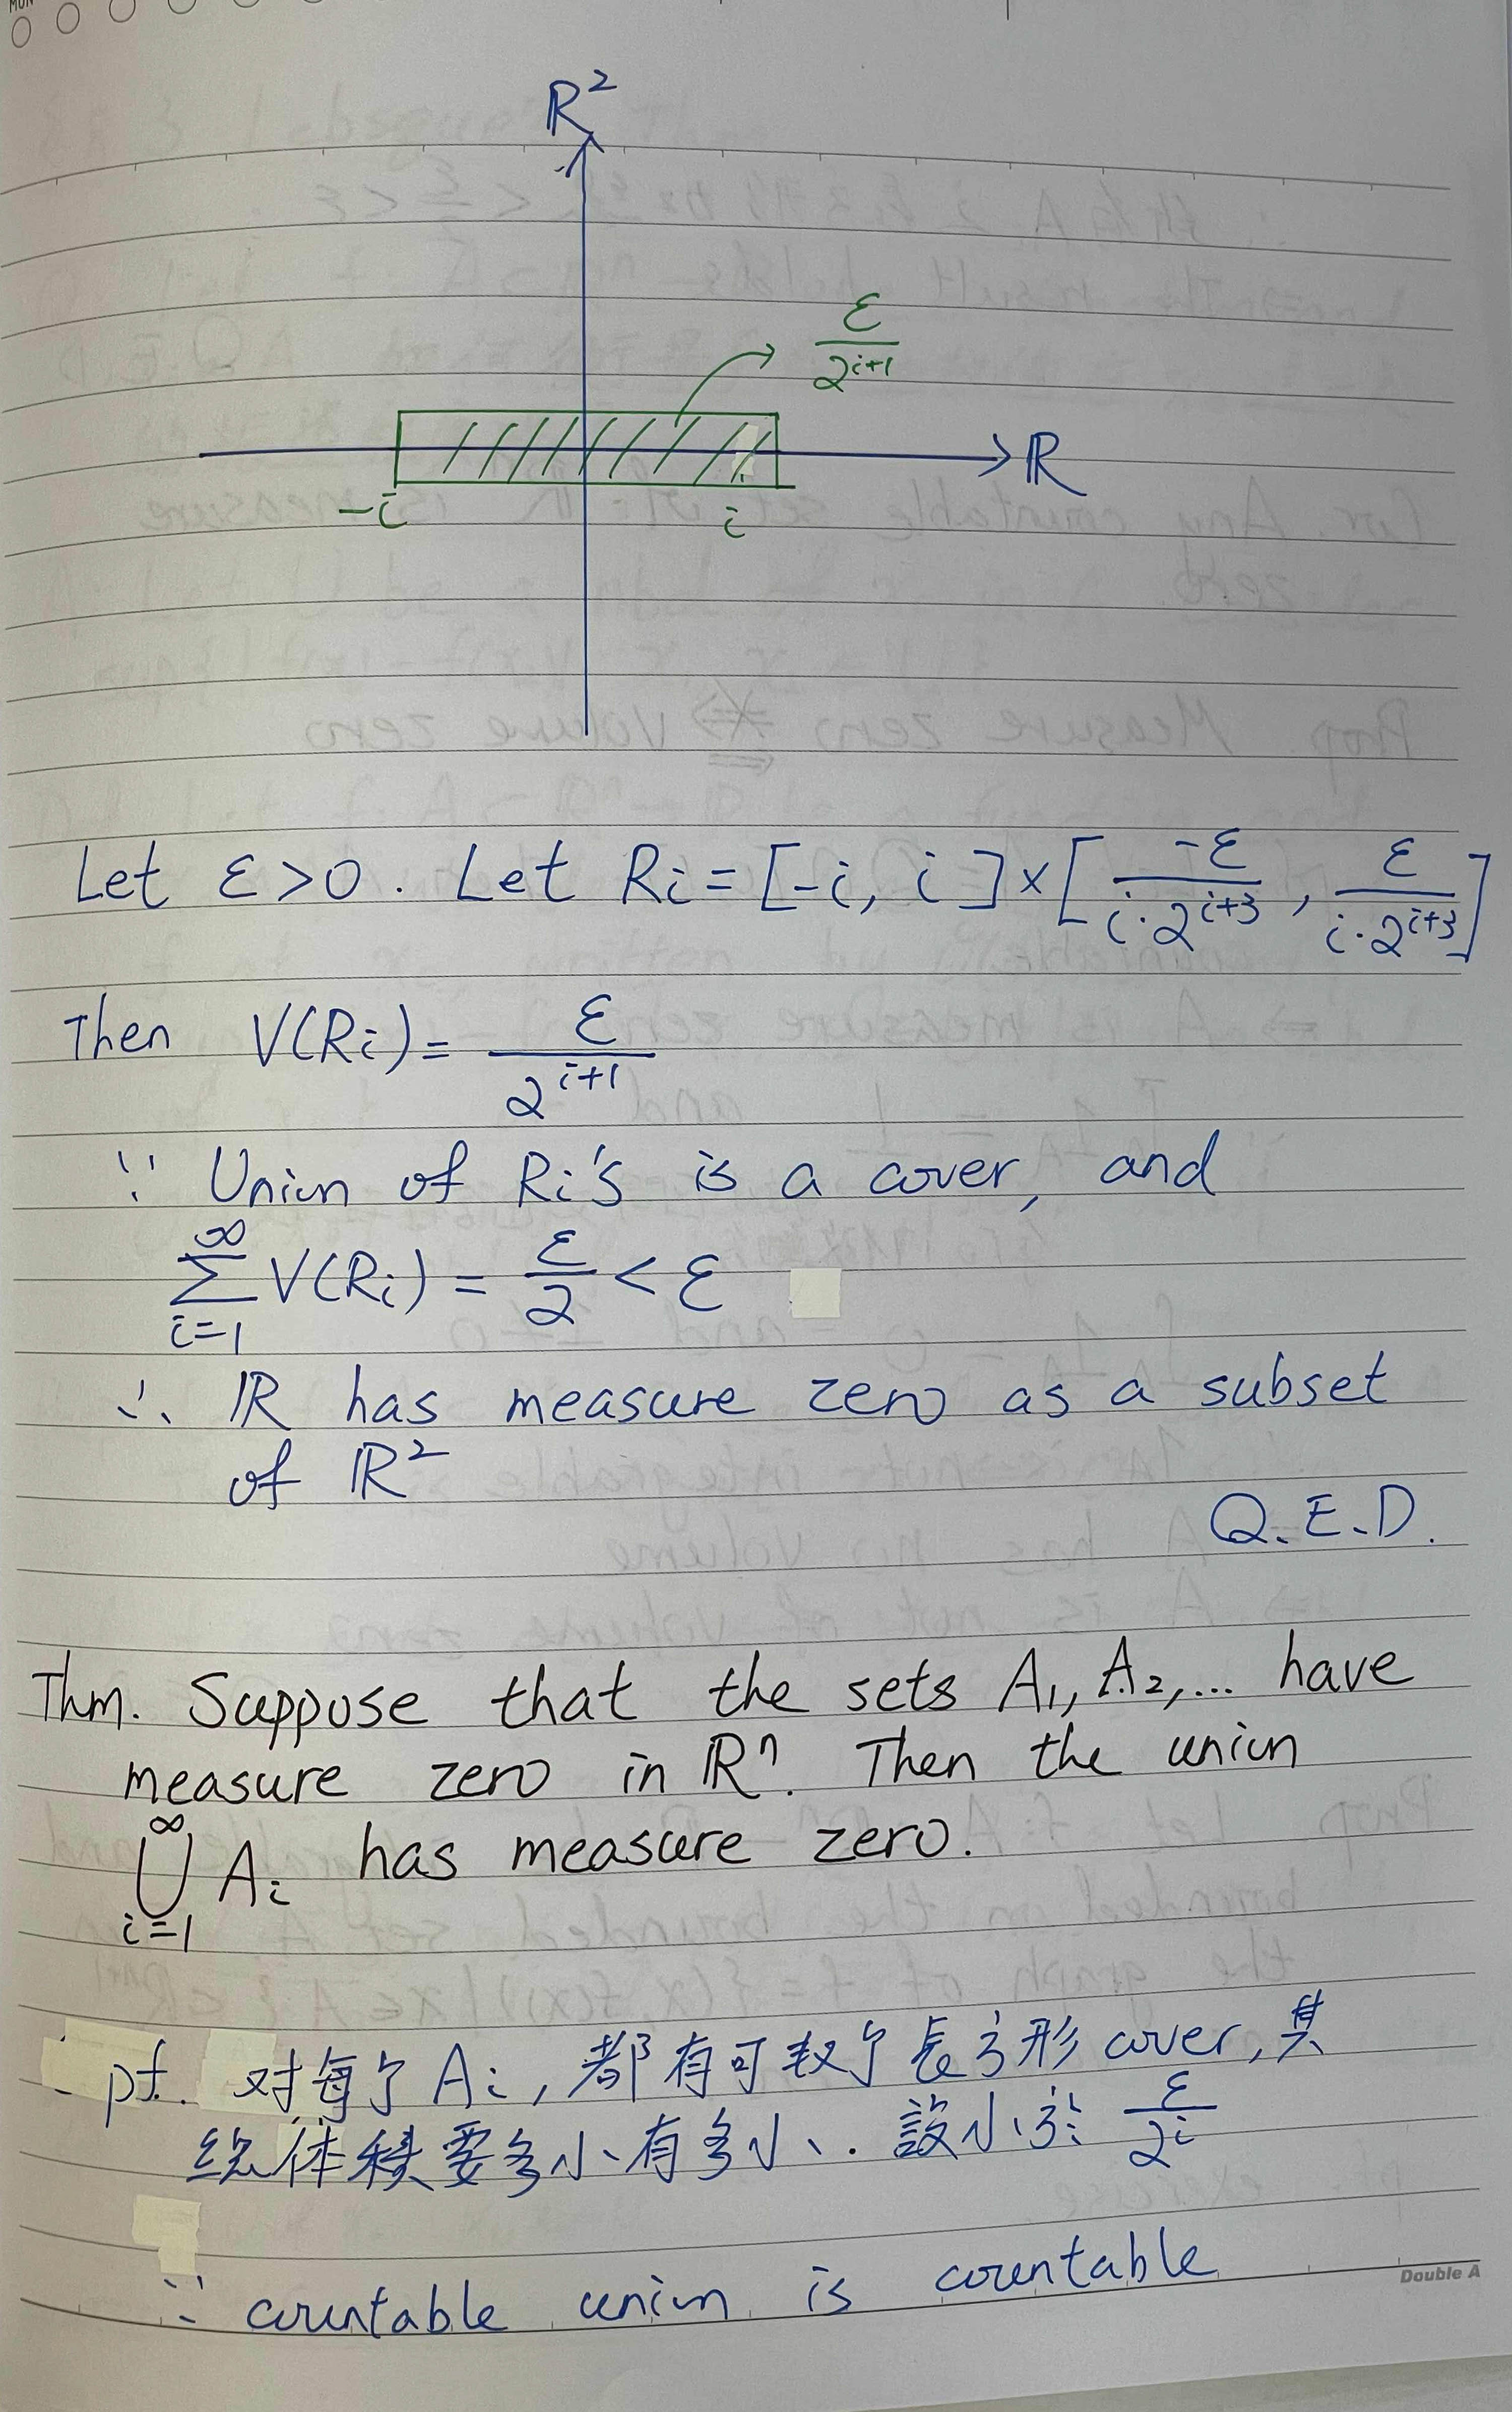 MON
ℝ²
ε/2^{i+1}
ℝ
-i
i
Let ε>0. Let Ri = [-i, i]×[-ε/(i·2^{i+3}), ε/(i·2^{i+3})]
Then V(Ri) = ε/2^{i+1}
∵ Union of Ri's is a cover, and
∑_{i=1}^{∞} V(Ri) = ε/2 < ε
∴ ℝ has measure zero as a subset
of ℝ²
Q.E.D.
Thm. Suppose that the sets A₁, A₂, ... have
measure zero in ℝⁿ. Then the union
⋃_{i=1}^{∞} Ai has measure zero.
pf. 对每个 Ai, 都有可数个長方形 cover, 其
总体積要多小有多小. 設小於 ε/2^i
∵ countable union is countable
Double A